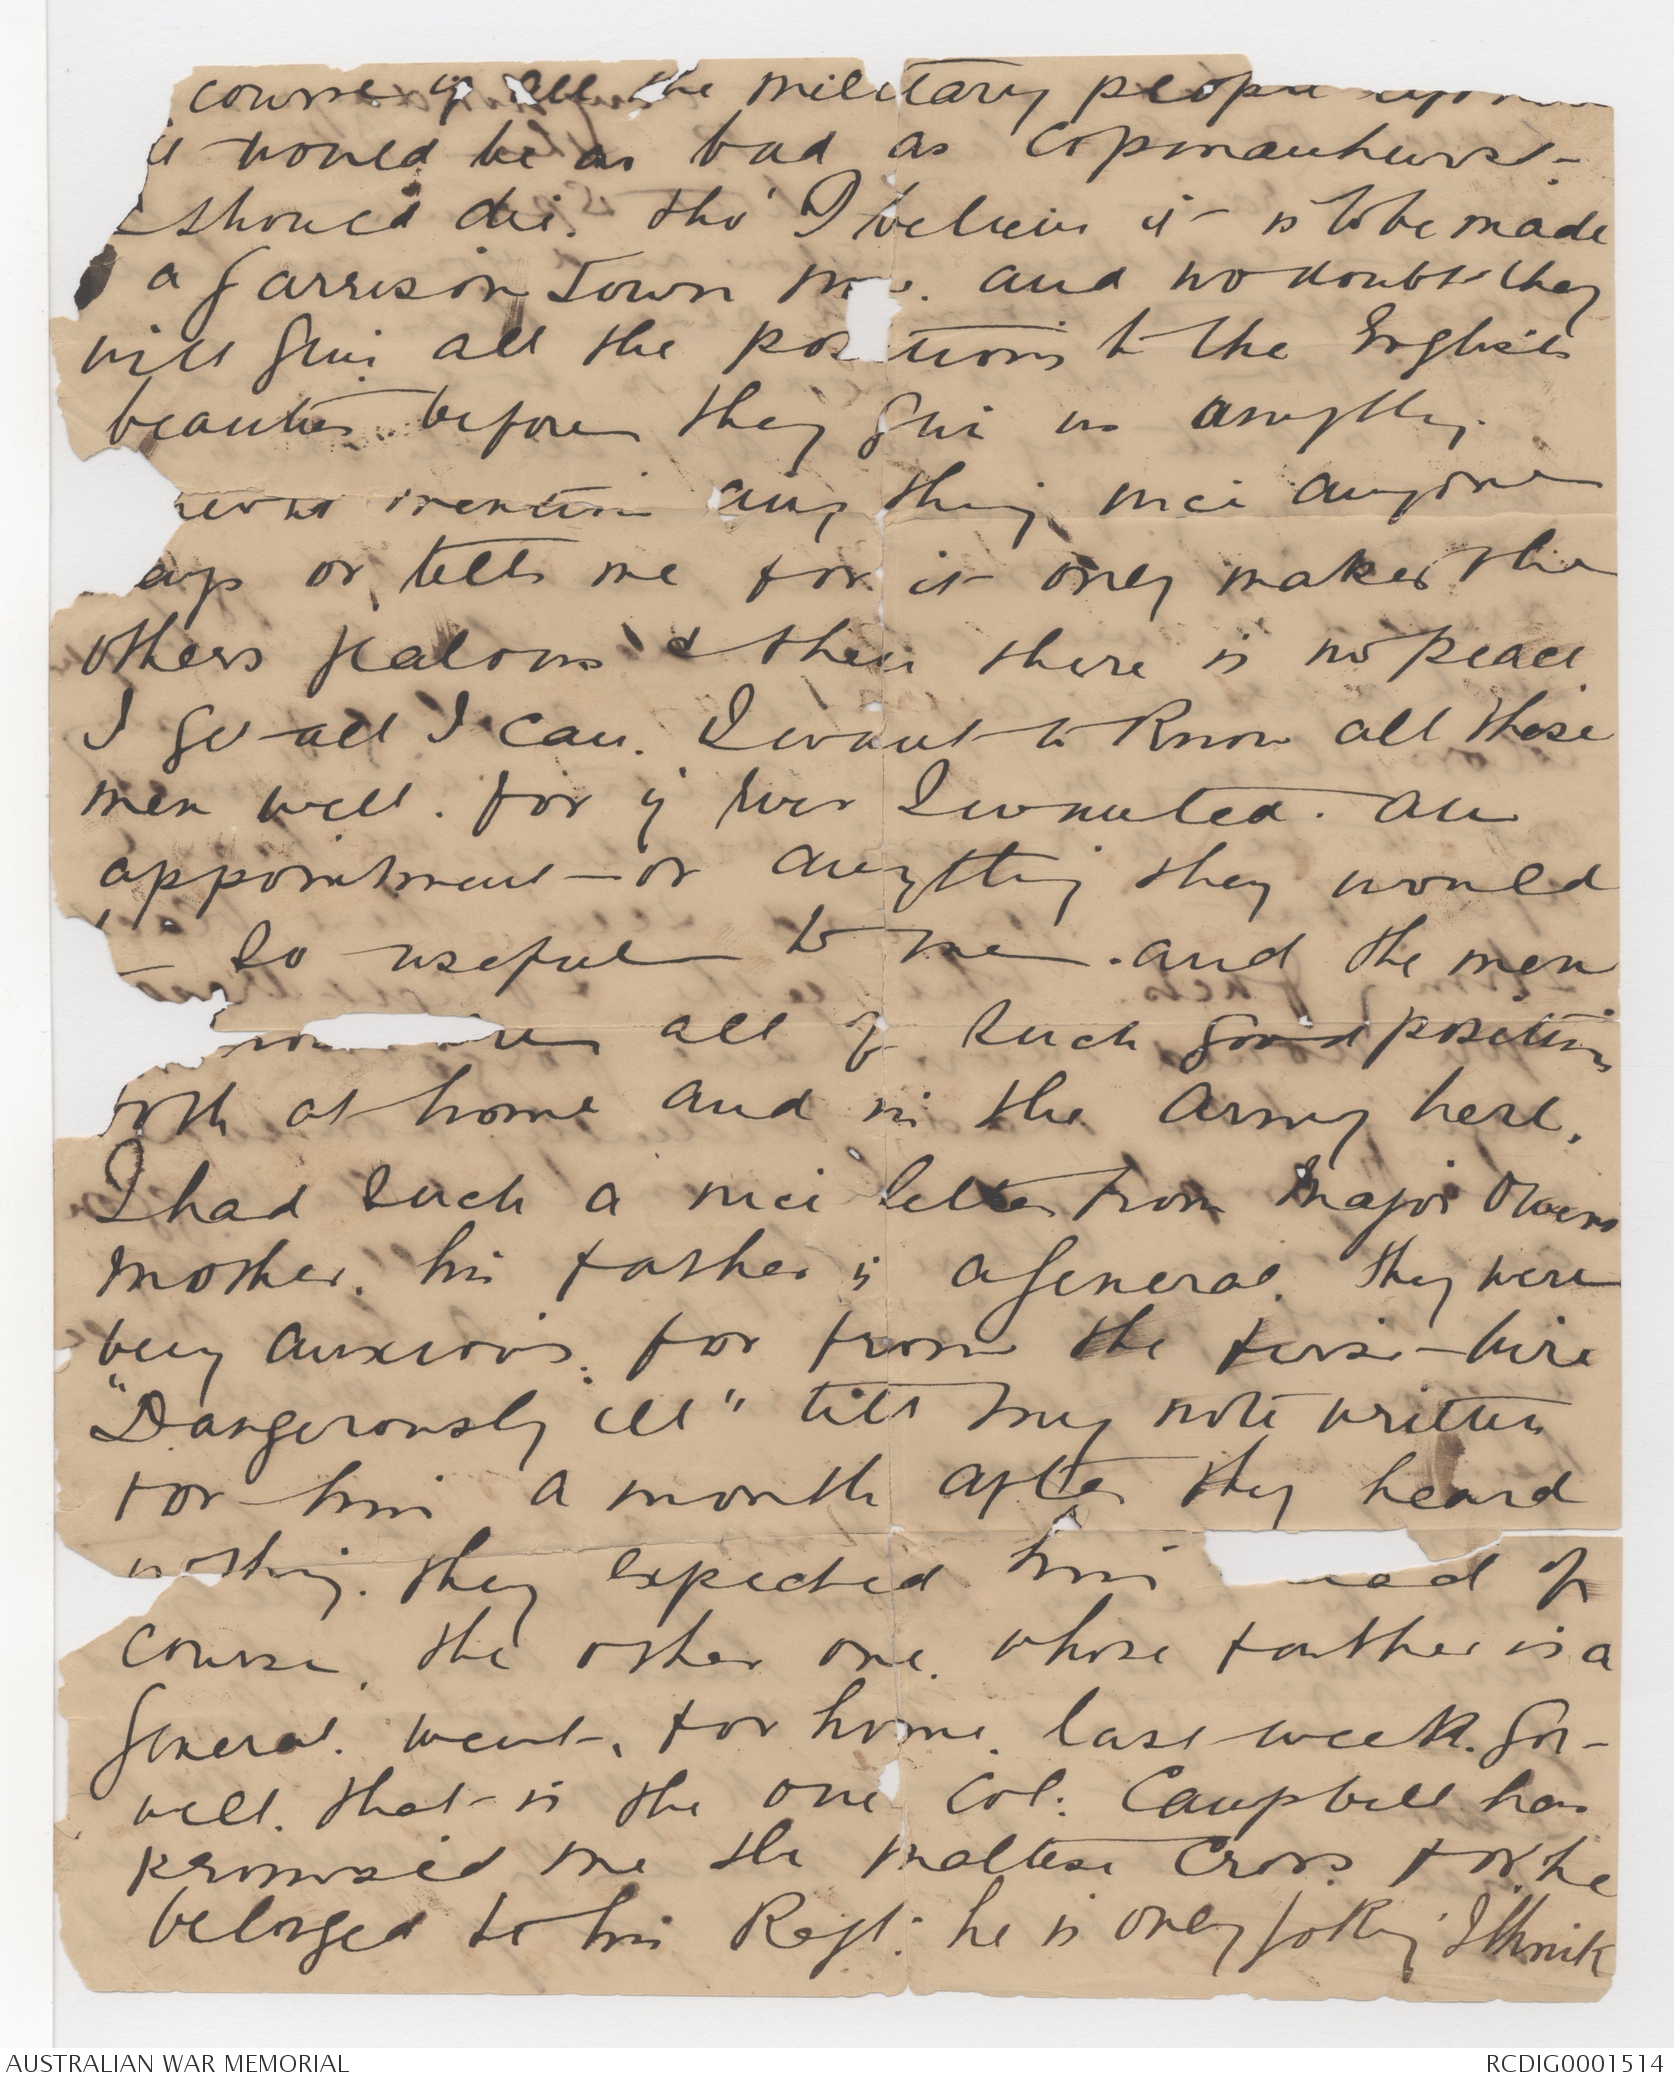 course if all the military people
it would be as bad as Copmanhurst -
I should die. tho' I believe it is to be made
a garrison town now. and no doubt they
will give all the positions to the English
beauties before they give us anything.
never mention any thing nice anyone
says or tells me for it only makes the
others jealous & then there is no peace.
I go all I can. I want to know all these
men well. for if ever I wanted. an
appointment - or anything they would
so useful to me. and the men
all of such good position
both at home and in the army here.
I had such a nice letter from Major Owens
mother. his father is a General. they were
very anxious. for from the first wire
"Dangerously ill" till my note written
for him a month after they heard
nothing. they expected him dead of
course. the other one. whose father is a
General. went. for home. last week. got
well. that is the one Col: Campbell has
promised me the Maltese Cross for. he
belonged to his Regt: he is only joking I think
AUSTRALIAN WAR MEMORIAL
RCDIG0001514